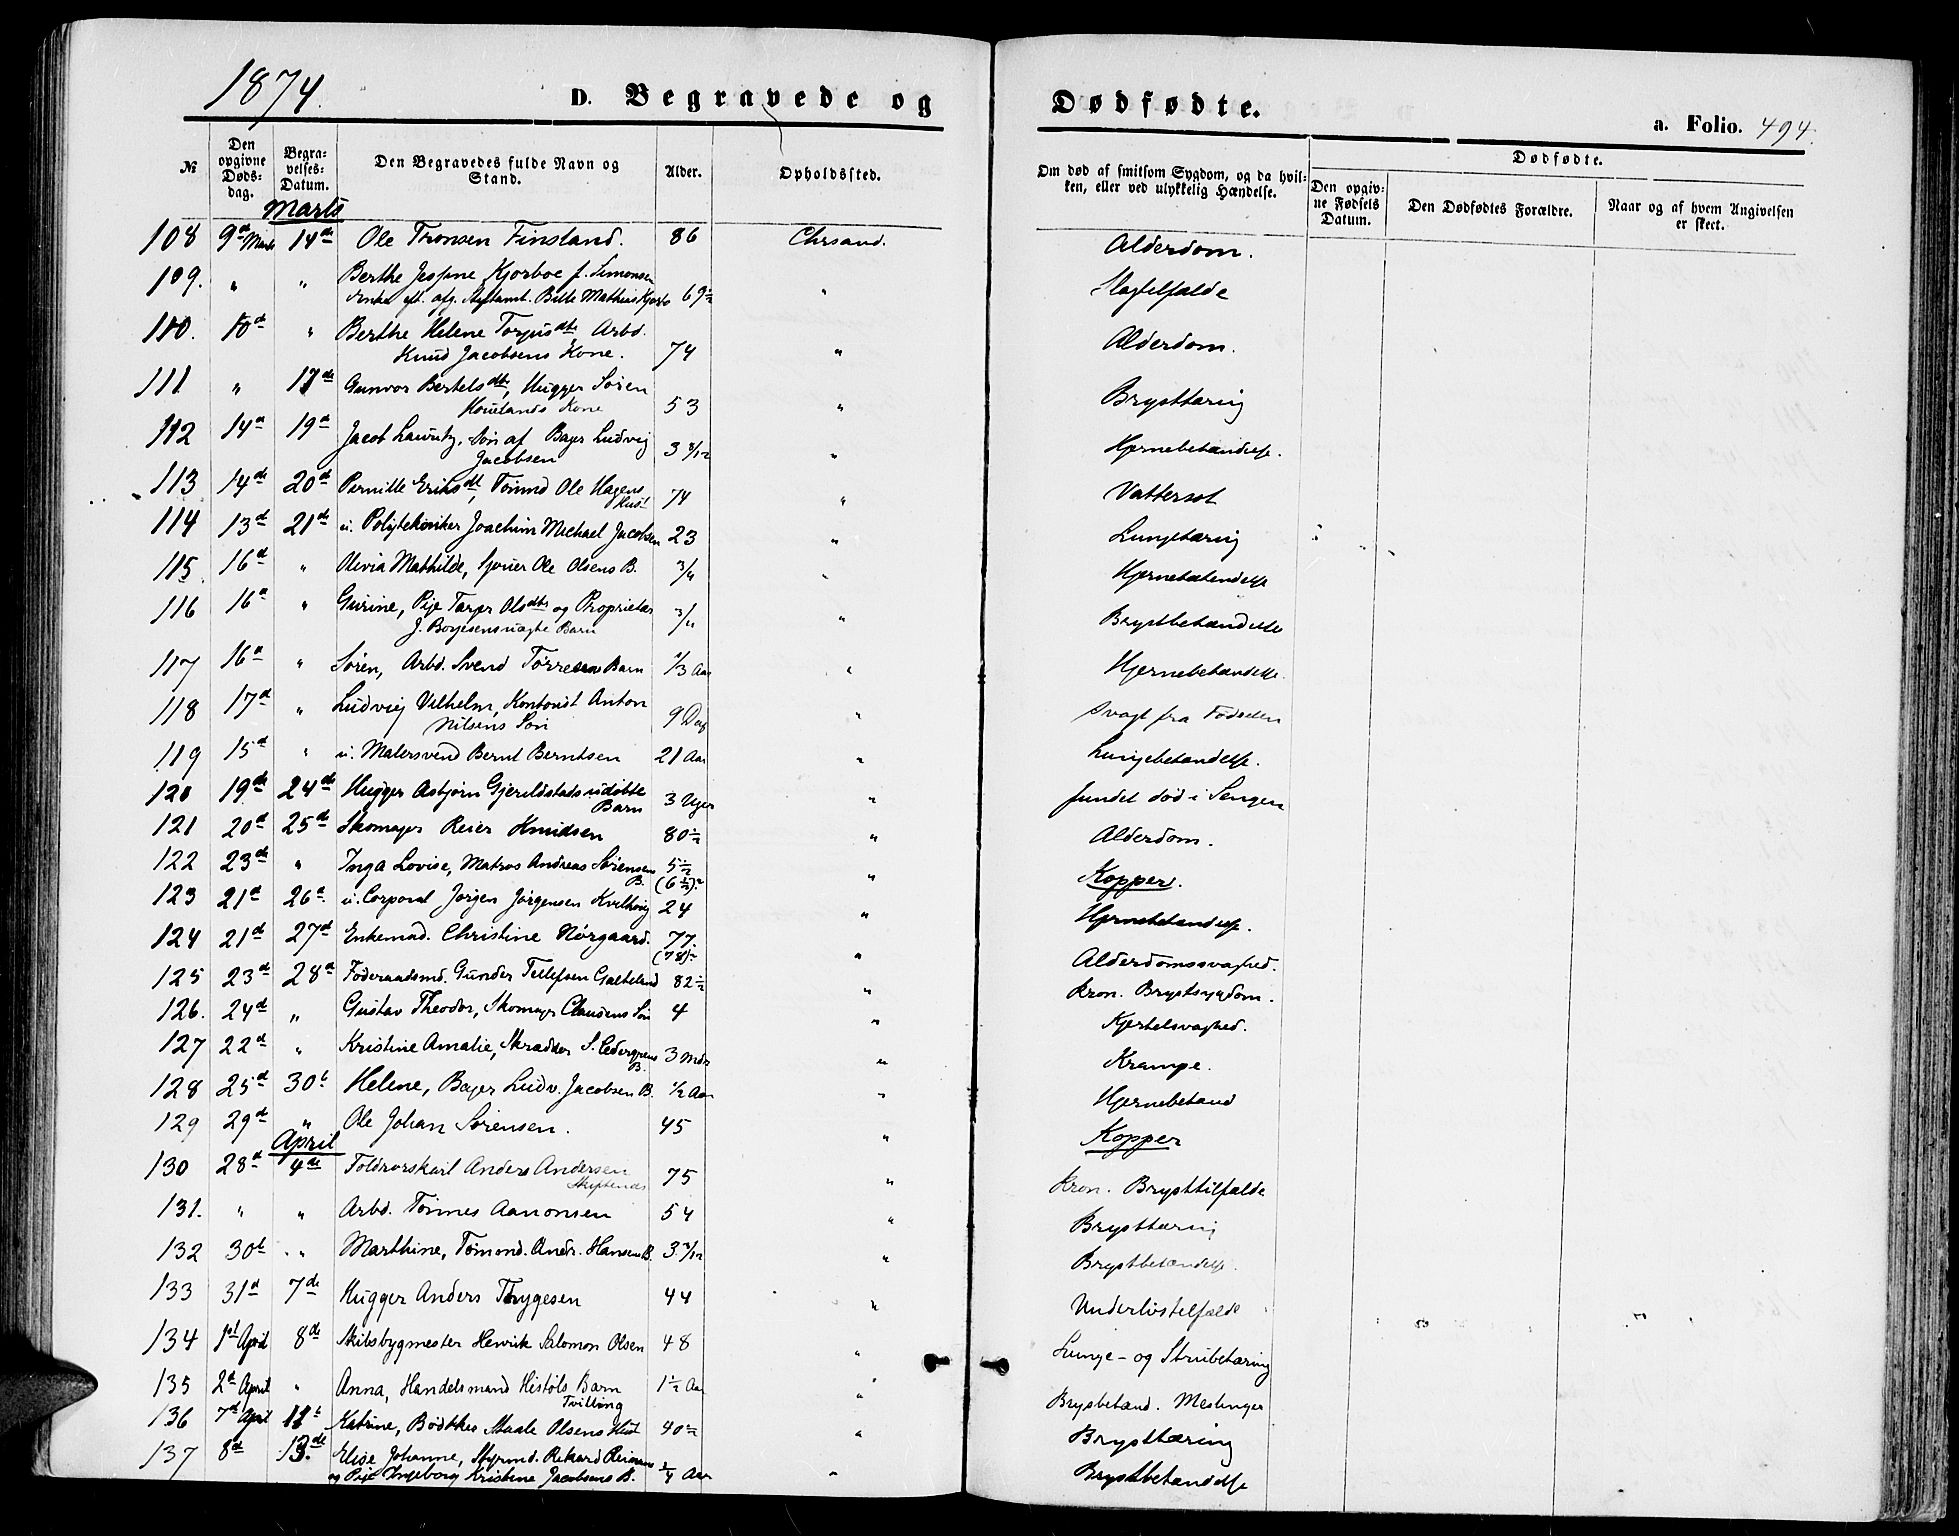 1874.
D. Begravede og Dødfødte.
a. Folio. 494.
№
Den opgivne Døds-dag.
Begra-velses-Datum.
Den Begravedes fulde Navn og Stand.
Alder.
Opholdssted.
Om død af smitsom Sygdom, og da hvil-ken, eller ved ulykkelig Hændelse.
Dødfødte.
Den opgiv-ne Fødsels Datum.
Den Dødfødtes Forældre.
Naar og af hvem Angivelsen er skeet.
Marts
108 9de Marts 14de Ole Tronsen Finsland. 86 Chrsand. Alderdom.
109. " " Berthe Jessine Kjørboe f. Simonsen
Enke eft. afg. Bille Mathias Kjørb 69½ "
110. 10de " Berthe Helene Torjusdtr Arbd.
Knud Jacobsens Kone. 74 " Alderdom.
111 " 17de Gunvor Bertelsdtr, Hugger Søren
Kone 53 " Brysttæring
112 14de 19de Jacob Lauritz, Søn af Bager Ludvig
Jacobsen 3 8/12 " Hjernebetændelse.
113 14de 20de Pernille Eriksdt, Tømmd Ole Hagens
Hust 74 " Vattersot
114 13de 21de u. Polytekniker Joachim Michael Jacobsen 23 " Lungetæring
115 16de " Olivia Mathilde, Sjouer Ole Olsens B. ¾ " Hjernebetændelse
116 16de " Gurine, Pige Olsdtr og Proprietær
J. Børjesens uægte Barn " Brystbetændelse
117 16de " Søren, Arbd. Svend Tørresens Barn ⅓ Aar " Hjernebetændelse
118 17de " Ludvig Vilhelm, Kontorist Anton
Nilsens Søn 9 Dag " Svagt fra Fødselen
119 15de " u. Malersvend Bernt Berntsen 21 Aar " Lungebetændelse.
120 19de 24de Hugger Asbjørn Gjerildstads udøbte
Barn 3 Uger " fundet død i Sengen
121 20de 25de Skomager Reier Knudsen 80½ " Alderdom.
122 23de " Inga Lovise, Matros Andreas Sørensen
B. 5½ (6½)? " Kopper.
123 21de 26de u. Corporal Jørgen Jørgensen 24 " Hjernebetændelse.
124 21de 27de Enkemad. Christine Nørgaard. 77. (78)? " Alderdomssvaghed.
125 23de 28de Føderaadsmd. Gunder Tellefsen 82½ " Kron. Brystsygdom.
126. 24de " Gustav Theodor, Skomager Claudens Søn 4 " Kjertelsvaghed.
127 22de " Kristine Amalie, Skrædder S. Cedergrens
B. 3 Mdr " Krampe.
128 25de 30te Helene, Bager Ludv. Jacobsen B. ½ Aar " Hjernebetænd
129 29de " Ole Johan Sørensen. 45 " Kopper
April
130 28de 4de Toldrorskarl Anders Andersen
75 " Kron. Brysttilfælde
131. " " Arbd. Tønnes Aanonsen 54 " Brysttæring
132 30te " Marthine, Tømmd. Andr. Hansens B. " Brystbetændelse.
133 31de 7de Hugger Anders Thygesen 44 " Underlivstilfælde
134 1st April 8de Skibsbygmester Henrik Salomon Olsen 48 " Lunge- og Strubetæring
135 2de April " Anna, Handelsmand Barn
Tvilling 1½ Aar " Brystbetænd. Meslinger
136 7de April 11te Katrine, Bødkker Staale Olsens Hust 40½ " Brysttæring
137 8de 13de Elise Johanne, Styrmd. Rikard
og Pige Ingeborg Kristine Jacobsens B. ¼ Aar " Brystbetændelse